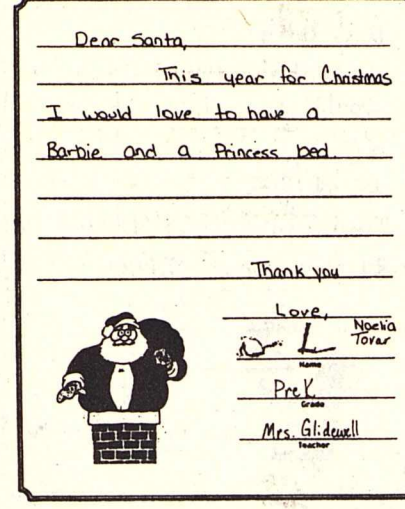 Dear Santa,
This year for Christmas
I would love to have a
Barbie and a Princess bed.
Thank you
Love,
Noelia
Tovar
Name
PreK
Grade
Mrs. Glidewell
Teacher